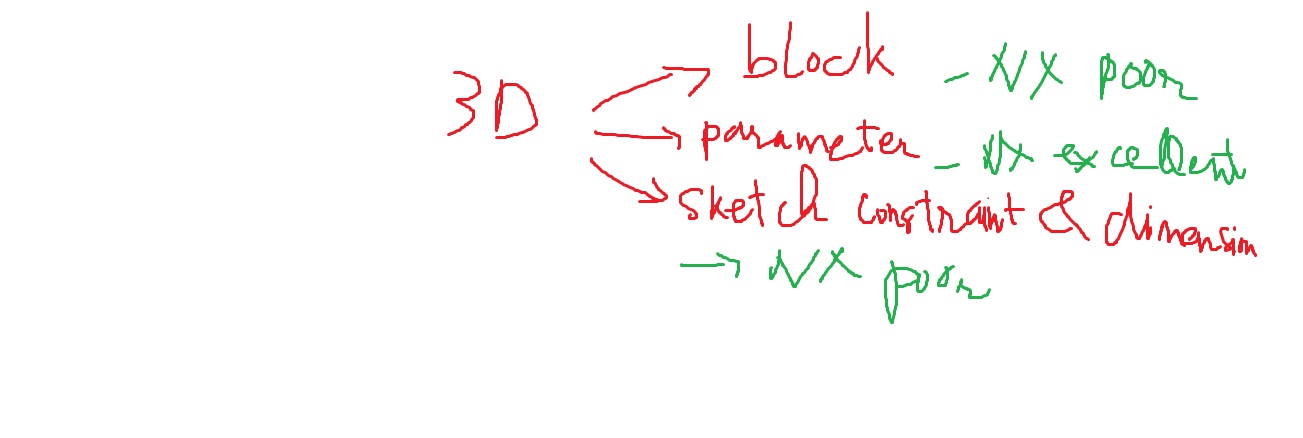 3D
block - NX poor
parameter - NX excellent
sketch constraint & dimension
→ NX poor